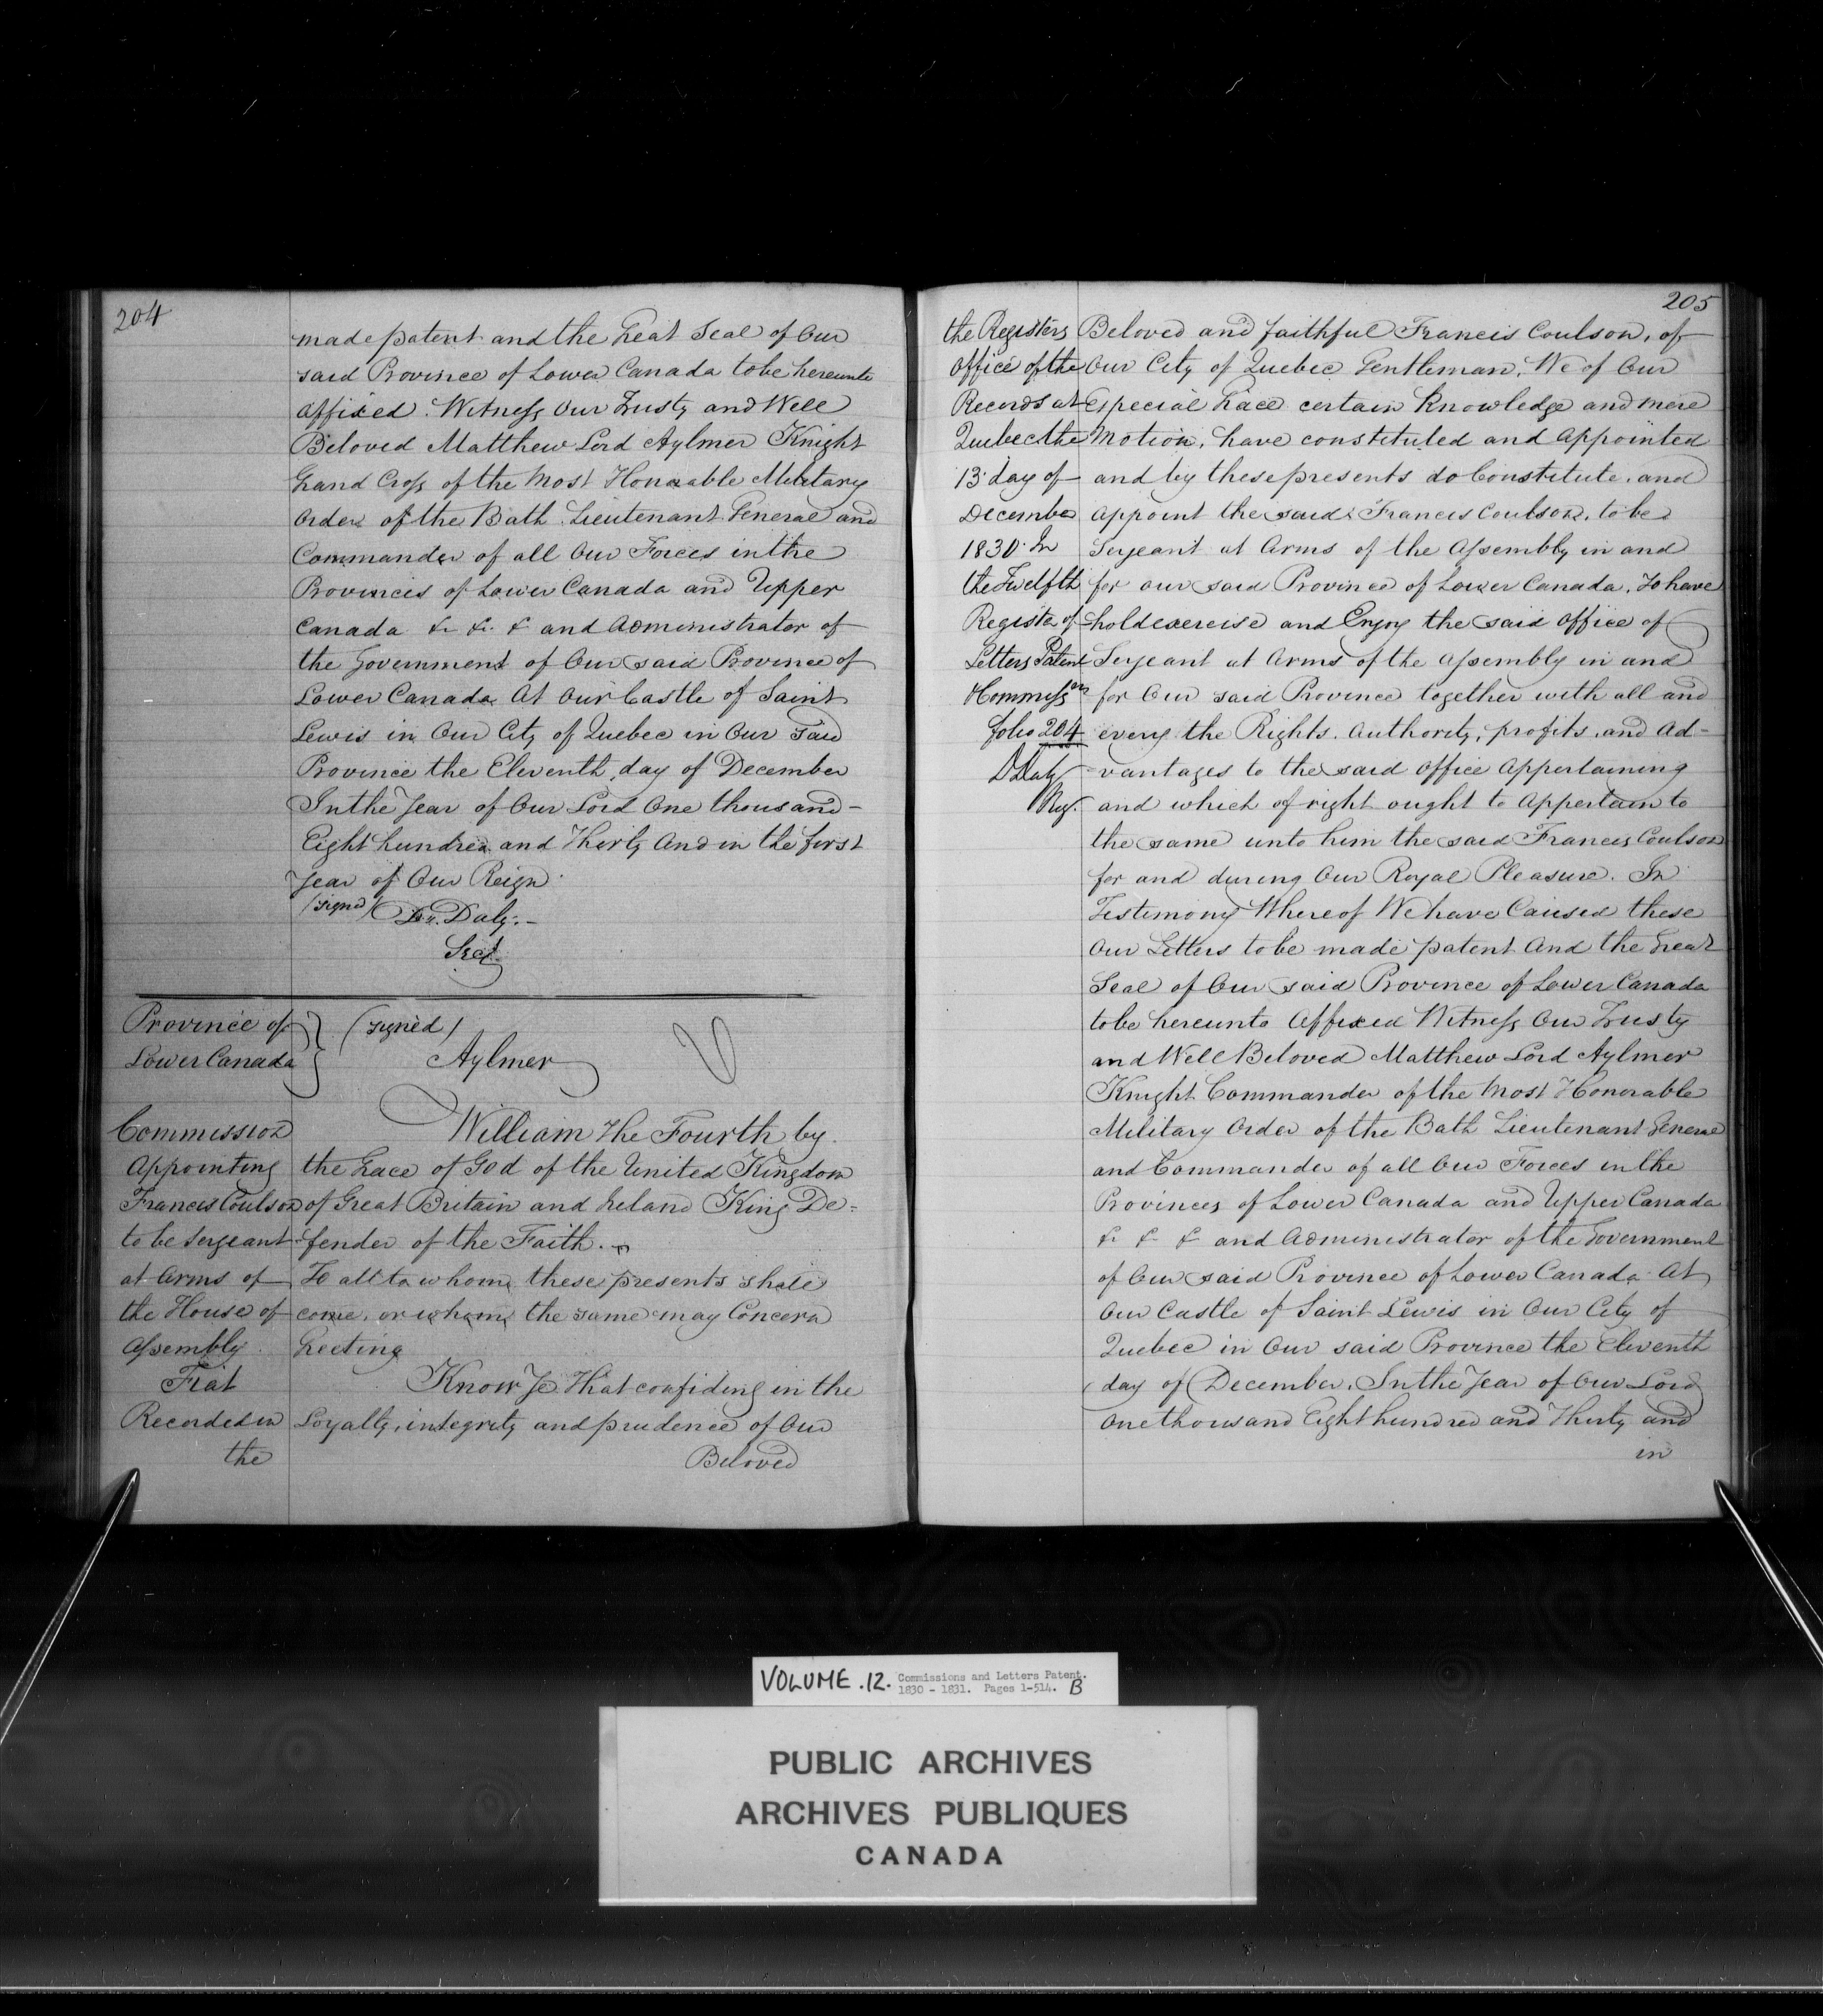 204
made patent and the Great Seal of Our
said Province of Lower Canada to be hereunto
affixed. Witness Our Trusty and Well
Beloved Matthew Lord Aylmer Knight
Grand Cross of the Most Honorable Military
Order of the Bath Lieutenant General and
Commander of all Our Forces in the
Provinces of Lower Canada and Upper
Canada &c &c &c and Administrator of
the Government of Our said Province of
Lower Canada At Our Castle of Saint
Lewis in Our City of Quebec in Our said
Province the Eleventh day of December
In the Year of Our Lord One thousand
Eight hundred and Thirty And in the first
Year of Our Reign
(signed) Dn. Daly.
Secy.
Province of
Lower Canada
(signed)
Aylmer
Commission
Appointing
Francis Coulson
to be Sergeant
at Arms of
the House of
Assembly.
Fiat
Recorded in
the
William the Fourth by
the Grace of God of the United Kingdom
of Great Britain and Ireland King De=
fender of the Faith.
To all to whom these presents shall
come, or whom the same may Concern
Greeting
Know Ye That confiding in the
Loyalty, integrity and prudence of Our
Beloved
205
the Registers
Office of the
Records at
Quebec the
13 day of
December
1830 In
the Twelfth
Register of
Letters Patent
& Commissns
folio 204
D Daly
Reg.
Beloved and faithful Francis Coulson, of
Our City of Quebec Gentleman, We of Our
especial Grace certain Knowledge and mere
Motion, have constituted and Appointed
and by these presents do Constitute, and
Appoint the said Francis Coulson, to be
Serjeant at Arms of the Assembly in and
for our said Province of Lower Canada, To have
hold exercise and Enjoy the said Office of
Serjeant at Arms of the Assembly in and
for Our said Province together with all and
every the Rights. Authority, profits, and Ad-
vantages to the said Office Appertaining
and which of right ought to Appertain to
the same unto him the said Francis Coulson
for and during Our Royal Pleasure. In
Testimony Whereof We have Caused these
Our Letters to be made patent And the Great
Seal of Our said Province of Lower Canada
to be hereunto Affixed Witness Our Trusty
and Well Beloved Matthew Lord Aylmer
Knight Commander of the Most Honorable
Military Order of the Bath Lieutenant General
and Commander of all Our Forces in the
Provinces of Lower Canada and Upper Canada
&c &c &c and Administrator of the Government
of Our said Province of Lower Canada At
Our Castle of Saint Lewis in Our City of
Quebec in Our said Province the Eleventh
day of December, In the Year of Our Lord
One thousand Eight hundred and Thirty and
in
VOLUME .12. Commissions and Letters Patent.
1830 - 1831. Pages 1-514. B
PUBLIC ARCHIVES
ARCHIVES PUBLIQUES
CANADA